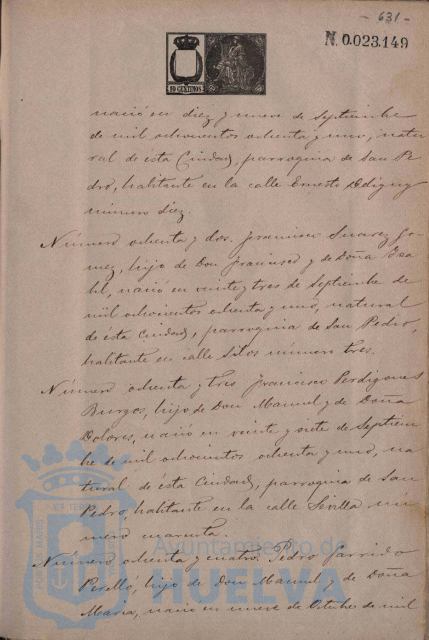 - 631 -
N. 0.023.149
10 CENTIMOS
nació en diez y nueve de Septiembre
de mil ochocientos ochenta y uno, natu-
ral de ésta Ciudad, parroquia de San Pe-
dro, habitante en la calle Ernesto
número diez.
Número ochenta y dos. Francisco Suarez Go-
mez, hijo de Don Francisco y de Doña Isa-
bel, nació en veinte y tres de Septiembre de
mil ochocientos ochenta y uno, natural
de ésta Ciudad, parroquia de San Pedro,
habitante en calle Silos número tres.
Número ochenta y tres Francisco Perdigones
Burgos, hijo de Don Manuel y de Doña
Dolores, nació en veinte y siete de Septiem-
bre de mil ochocientos ochenta y uno, na-
tural de ésta Ciudad, parroquia de San
Pedro, habitante en la calle Sevilla nú-
mero cuarenta.
Número ochenta y cuatro. Pedro Garrido
Perelló, hijo de Don Manuel y de Doña
Maria, nació en nueve de Octubre de mil
Ayuntamiento de
HUELVA